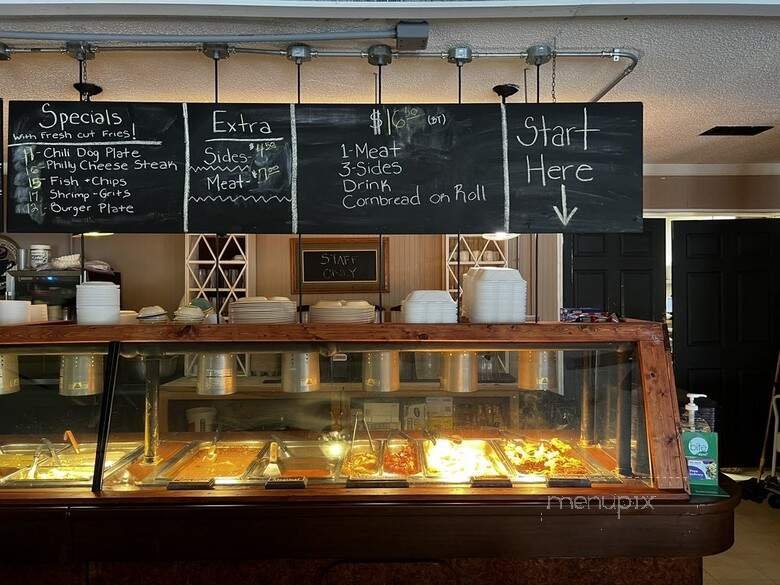 Specials
With Fresh Cut Fries!
11- Chili Dog Plate
Philly Cheese Steak
15- Fish + Chips
17- Shrimp-Grits
12- Burger Plate
Extra
Sides- $4.50
Meat- $7.00
$16.50
1-Meat
3-Sides
Drink
Cornbread or Roll
Start
Here
STAFF
ONLY
menupix